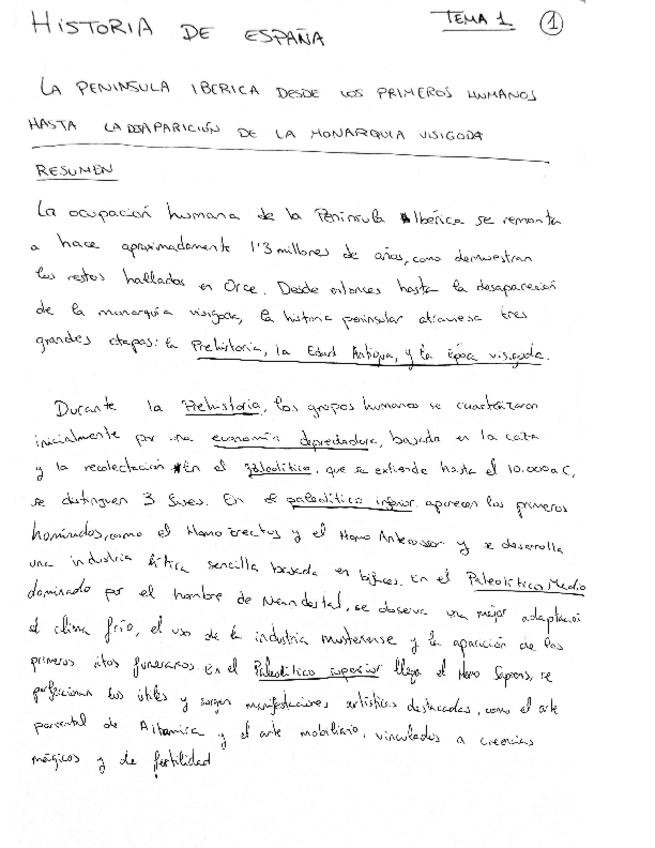 HISTORIA DE ESPAÑA
TEMA 1 1
LA PENINSULA IBERICA DESDE LOS PRIMEROS HUMANOS
HASTA LA DESAPARICIÓN DE LA MONARQUIA VISIGODA
RESUMEN
La ocupación humana de la Península Ibérica se remonta
a hace aproximadamente 1'3 millones de años, como demuestran
los restos hallados en Orce. Desde entonces hasta la desaparición
de la monarquía visigoda, la historia peninsular atraviesa tres
grandes etapas: la Prehistoria, la Edad Antigua, y la época visigoda.
Durante la Prehistoria, los grupos humanos se caracterizaron
inicialmente por una economía depredadora, basada en la caza
y la recolectación En el paleolítico, que se extiende hasta el 10.000 a C,
se distinguen 3 fases. En el paleolítico inferior, aparecen los primeros
homínidos, como el Homo erectus y el Homo Antecessor y se desarrolla
una industria lítica sencilla basada en bifaces. En el Paleolítico Medio
dominado por el hombre de Neandertal, se observa una mejor adaptación
al clima frío, el uso de la industria musteriense y la aparición de los
primeros ritos funerarios En el Paleolítico superior llega el Homo Sapiens, se
perfeccionan los útiles y surgen manifestaciones artísticas destacadas, como el arte
parietal de Altamira y el arte mobiliario, vinculados a creencias
mágicas y de fertilidad